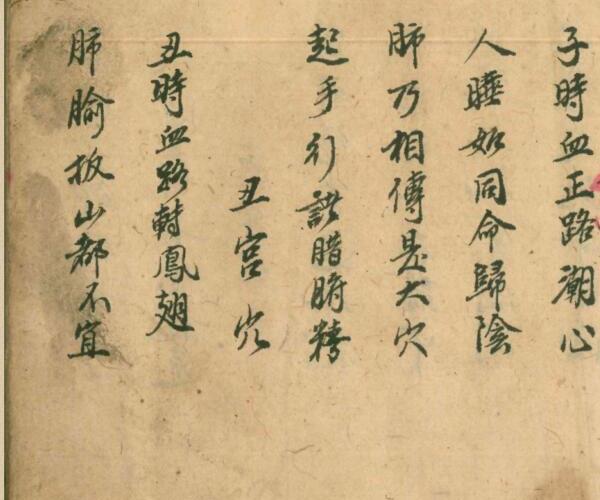 子時血正路潮心
人睡如同命歸陰
肺乃相傳是大穴
起手行諸腊時
丑宮穴
丑時血路對鳳翅
肺腧扳山都不宜